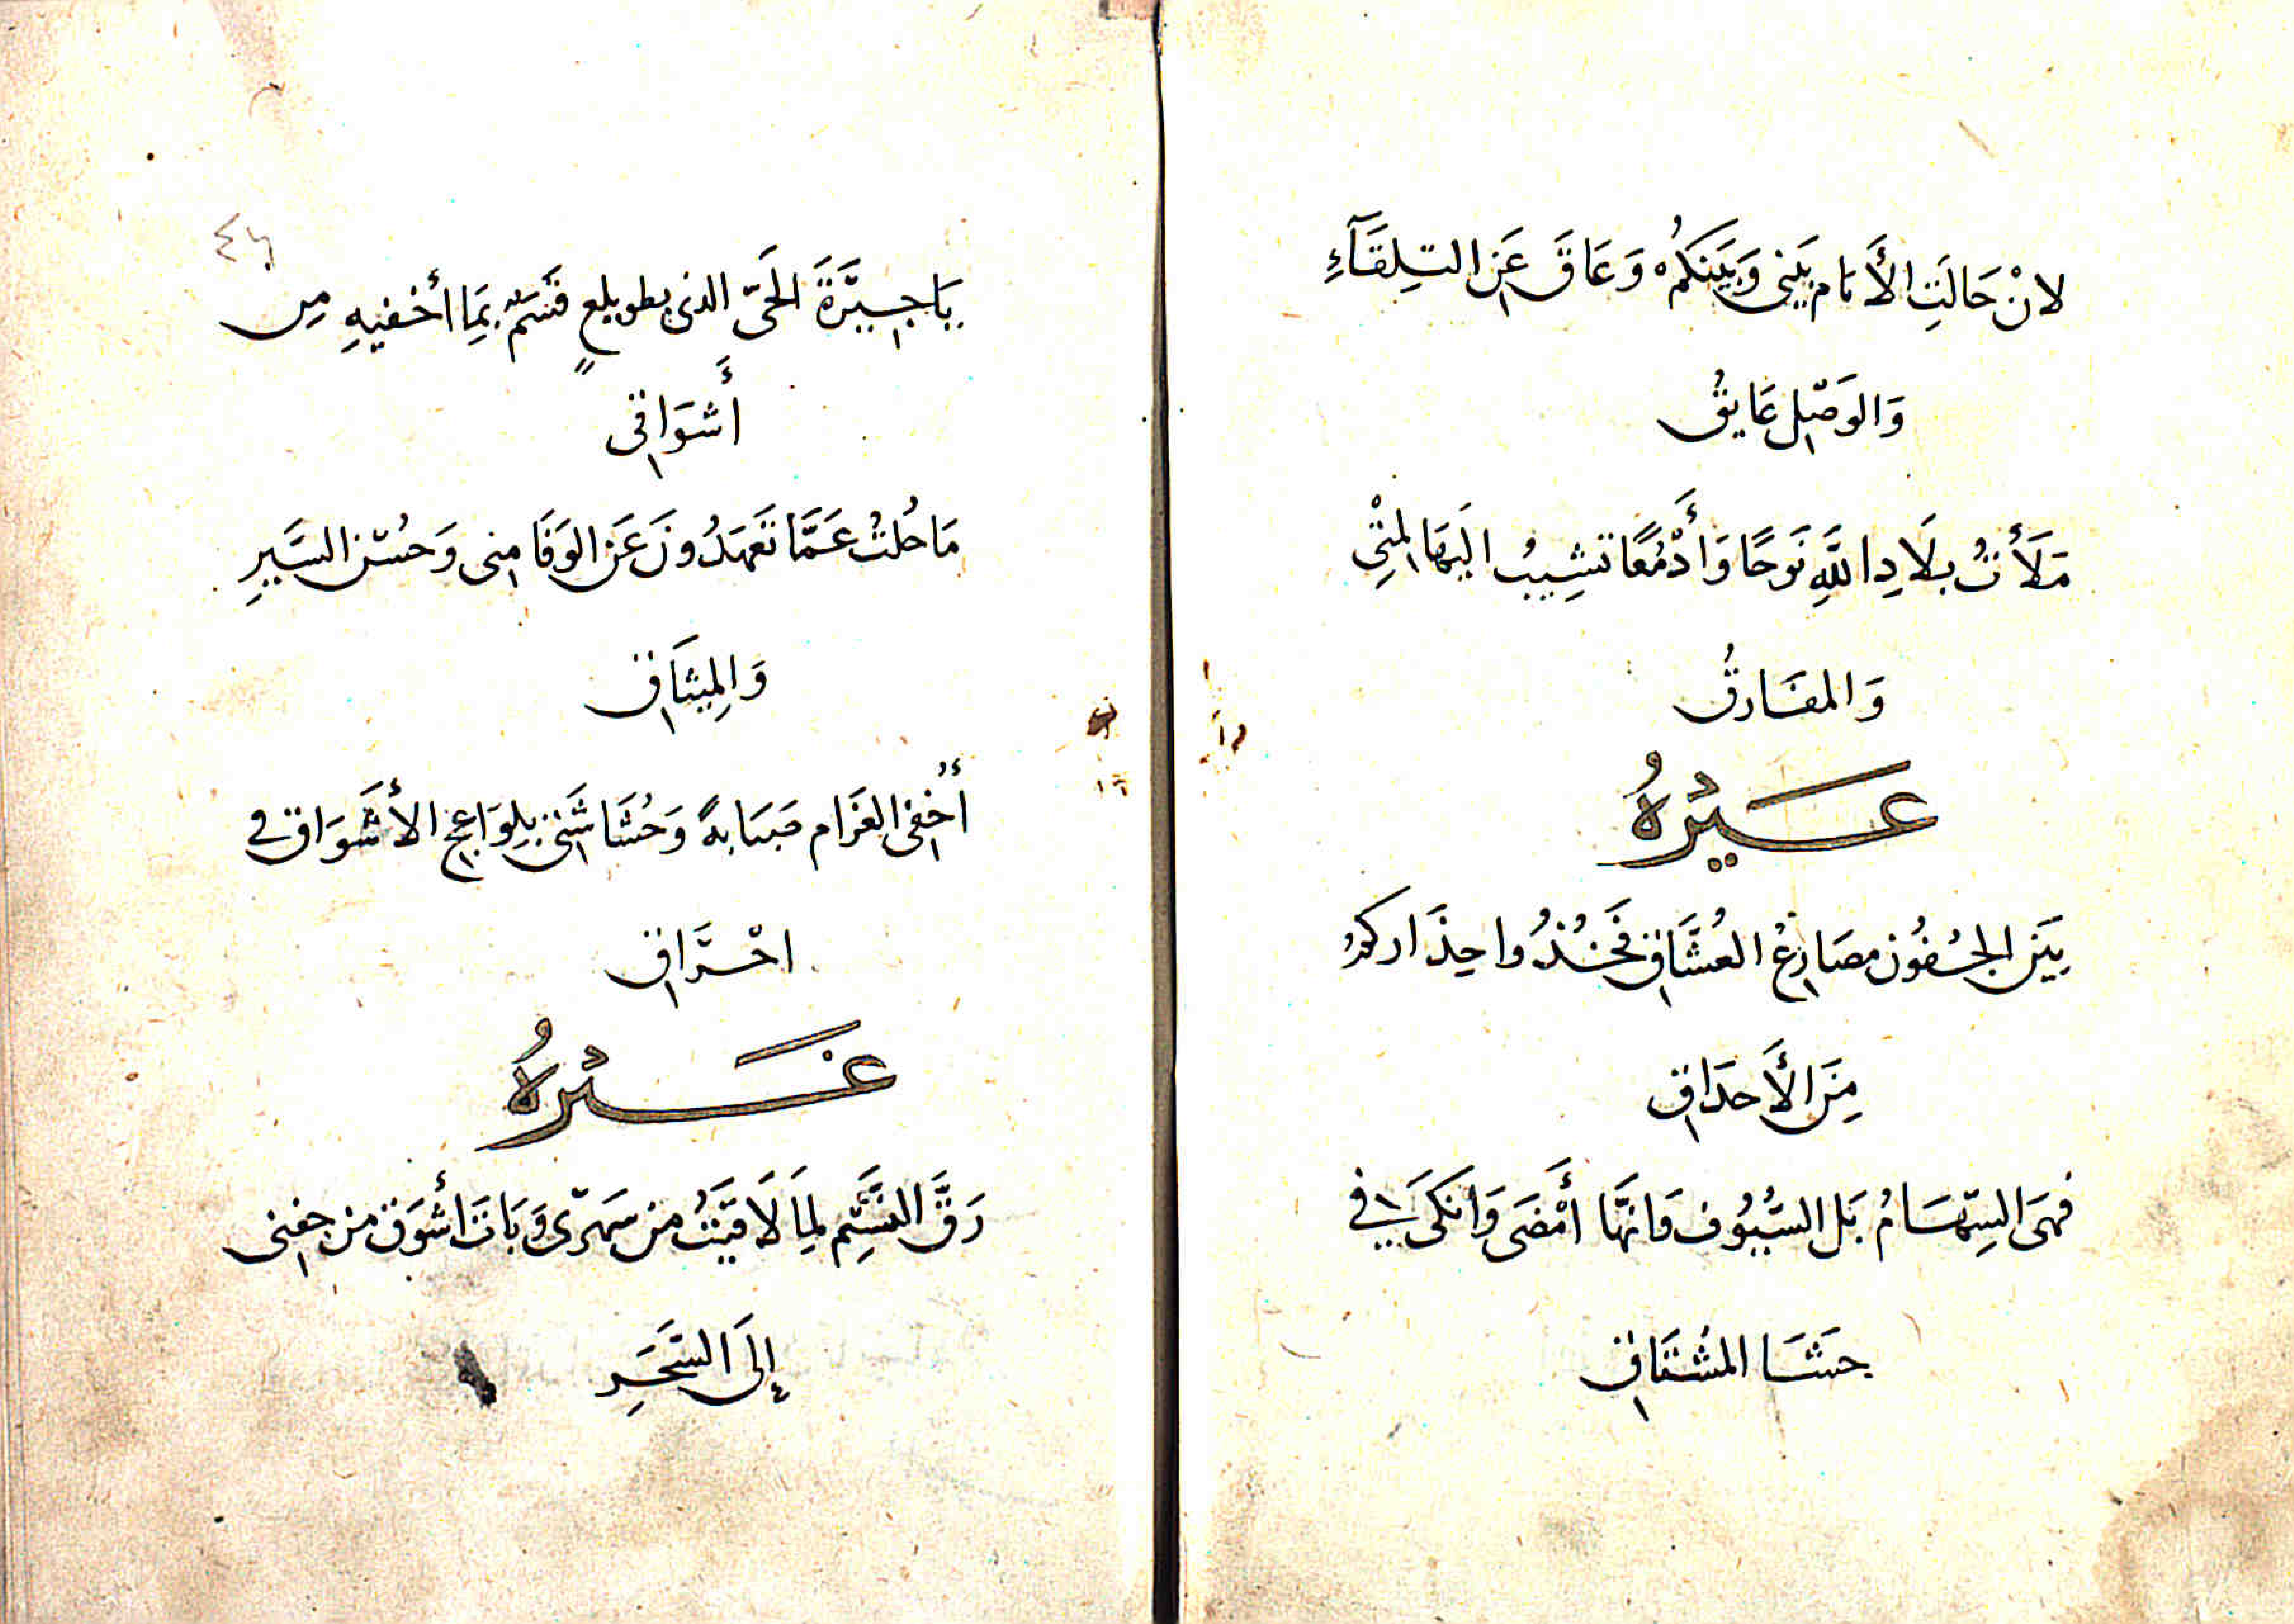 لانْ حَالَتِ الأَيَام بَينى وَبَينَكُمْ وَعَاقَ عَنِ التِلِقَآءِ
وَالوَصْلِ عَايقُ
مَلَأتُ بلَادِ اللَّهِ نَوحًا وَأَدْمُعًا تشِيبُ اليَهَا المتْنِ
وَالمفَارقُ
غَيْرُهُ
بَينَ الجُفُون مصَارعُ العُشَّاقِ فَخُذُوا حِذَاركمُ
مِنَ الأَحدَاقِ
فهىَ السِّهَامُ بَل السُّيُوف وَانهَّا أَمْضَى وَانكَى فى
حَشَا المُشتَاقِ
٤٦
يَاجِيَرَةَ الحَىّ الذى بطويلعٍ قسَمٌ بمَا أخفيهِ مِن
أَشوَاقى
مَا حُلتُ عَمَّا تَعهَدُونَ عَن الوَفَا مِنى وَحُسْن السَّيرِ
وَالمِيثَاقِ
أُخفى الغَرَام صَبَابةً وَحُشَاشَتى بلِوَاعِج الأشَوَاق فى
احْتَراقِ
غَيْرُهُ
رَقَّ النسَّيم لِمَا لَاقيَتُ من سَهَرّى وَبَاتَ أشوَق من جفنى
إلىَ السَّحَرِ